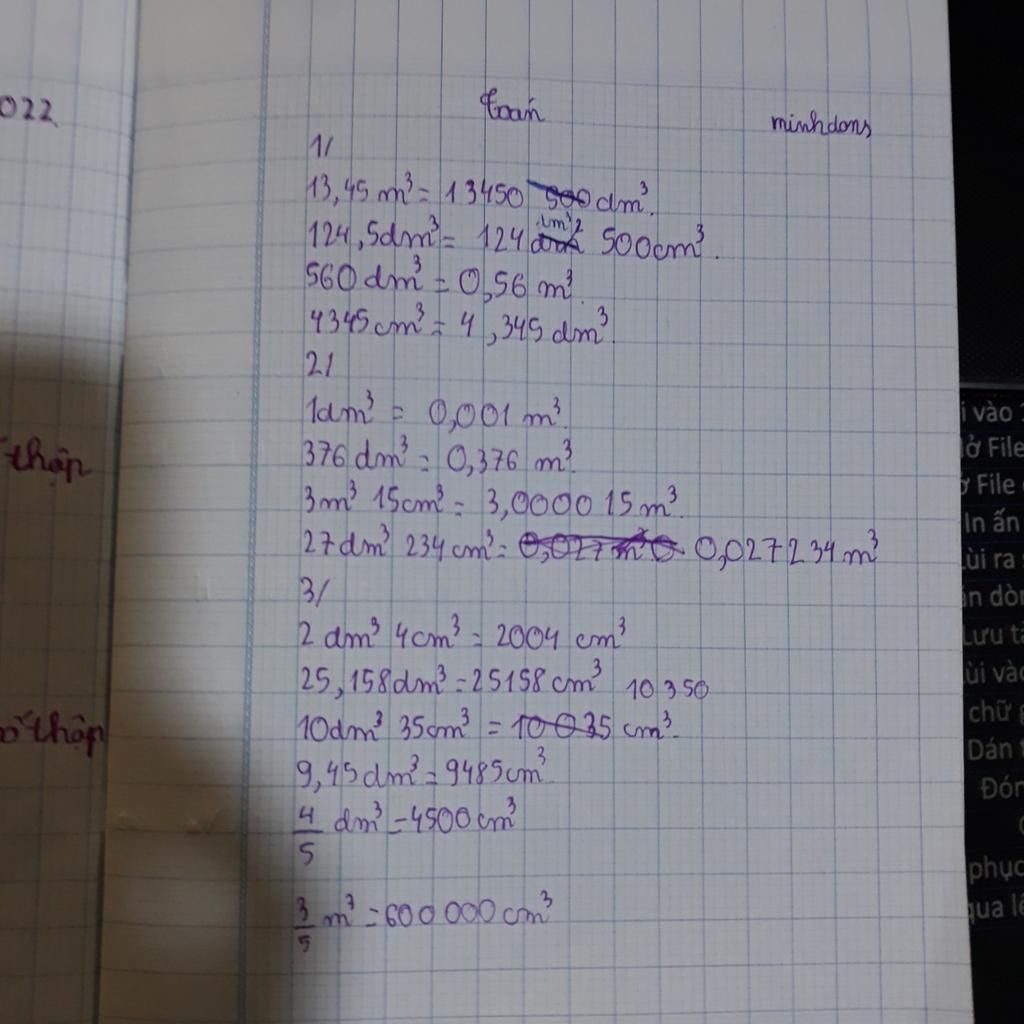 022
toán
minhdons
1/
13,45 m³ = 13450 dm³.
124,5dm³ = 124 500cm³.
560 dm³ = 0,56 m³.
4345cm³ = 4,345 dm³.
2/
1dm³ = 0,001 m³.
376 dm³ = 0,376 m³.
thập
3m³ 15cm³ = 3,0000 15 m³.
27dm³ 234 cm³ = 0,027234 m³
3/
2 dm³ 4cm³ = 2004 cm³
25,158dm³ = 25158 cm³ 10350
10dm³ 35cm³ = 10035 cm³.
thập
9,45 dm³ = 9485cm³
4/5 dm³ = 4500 cm³
3/5 m³ = 600 000 cm³
i vào
ở File
File
In ấn
ùi ra
n dòn
Lưu tà
ùi vào
chữ
Dán
Đón
phục
qua lê